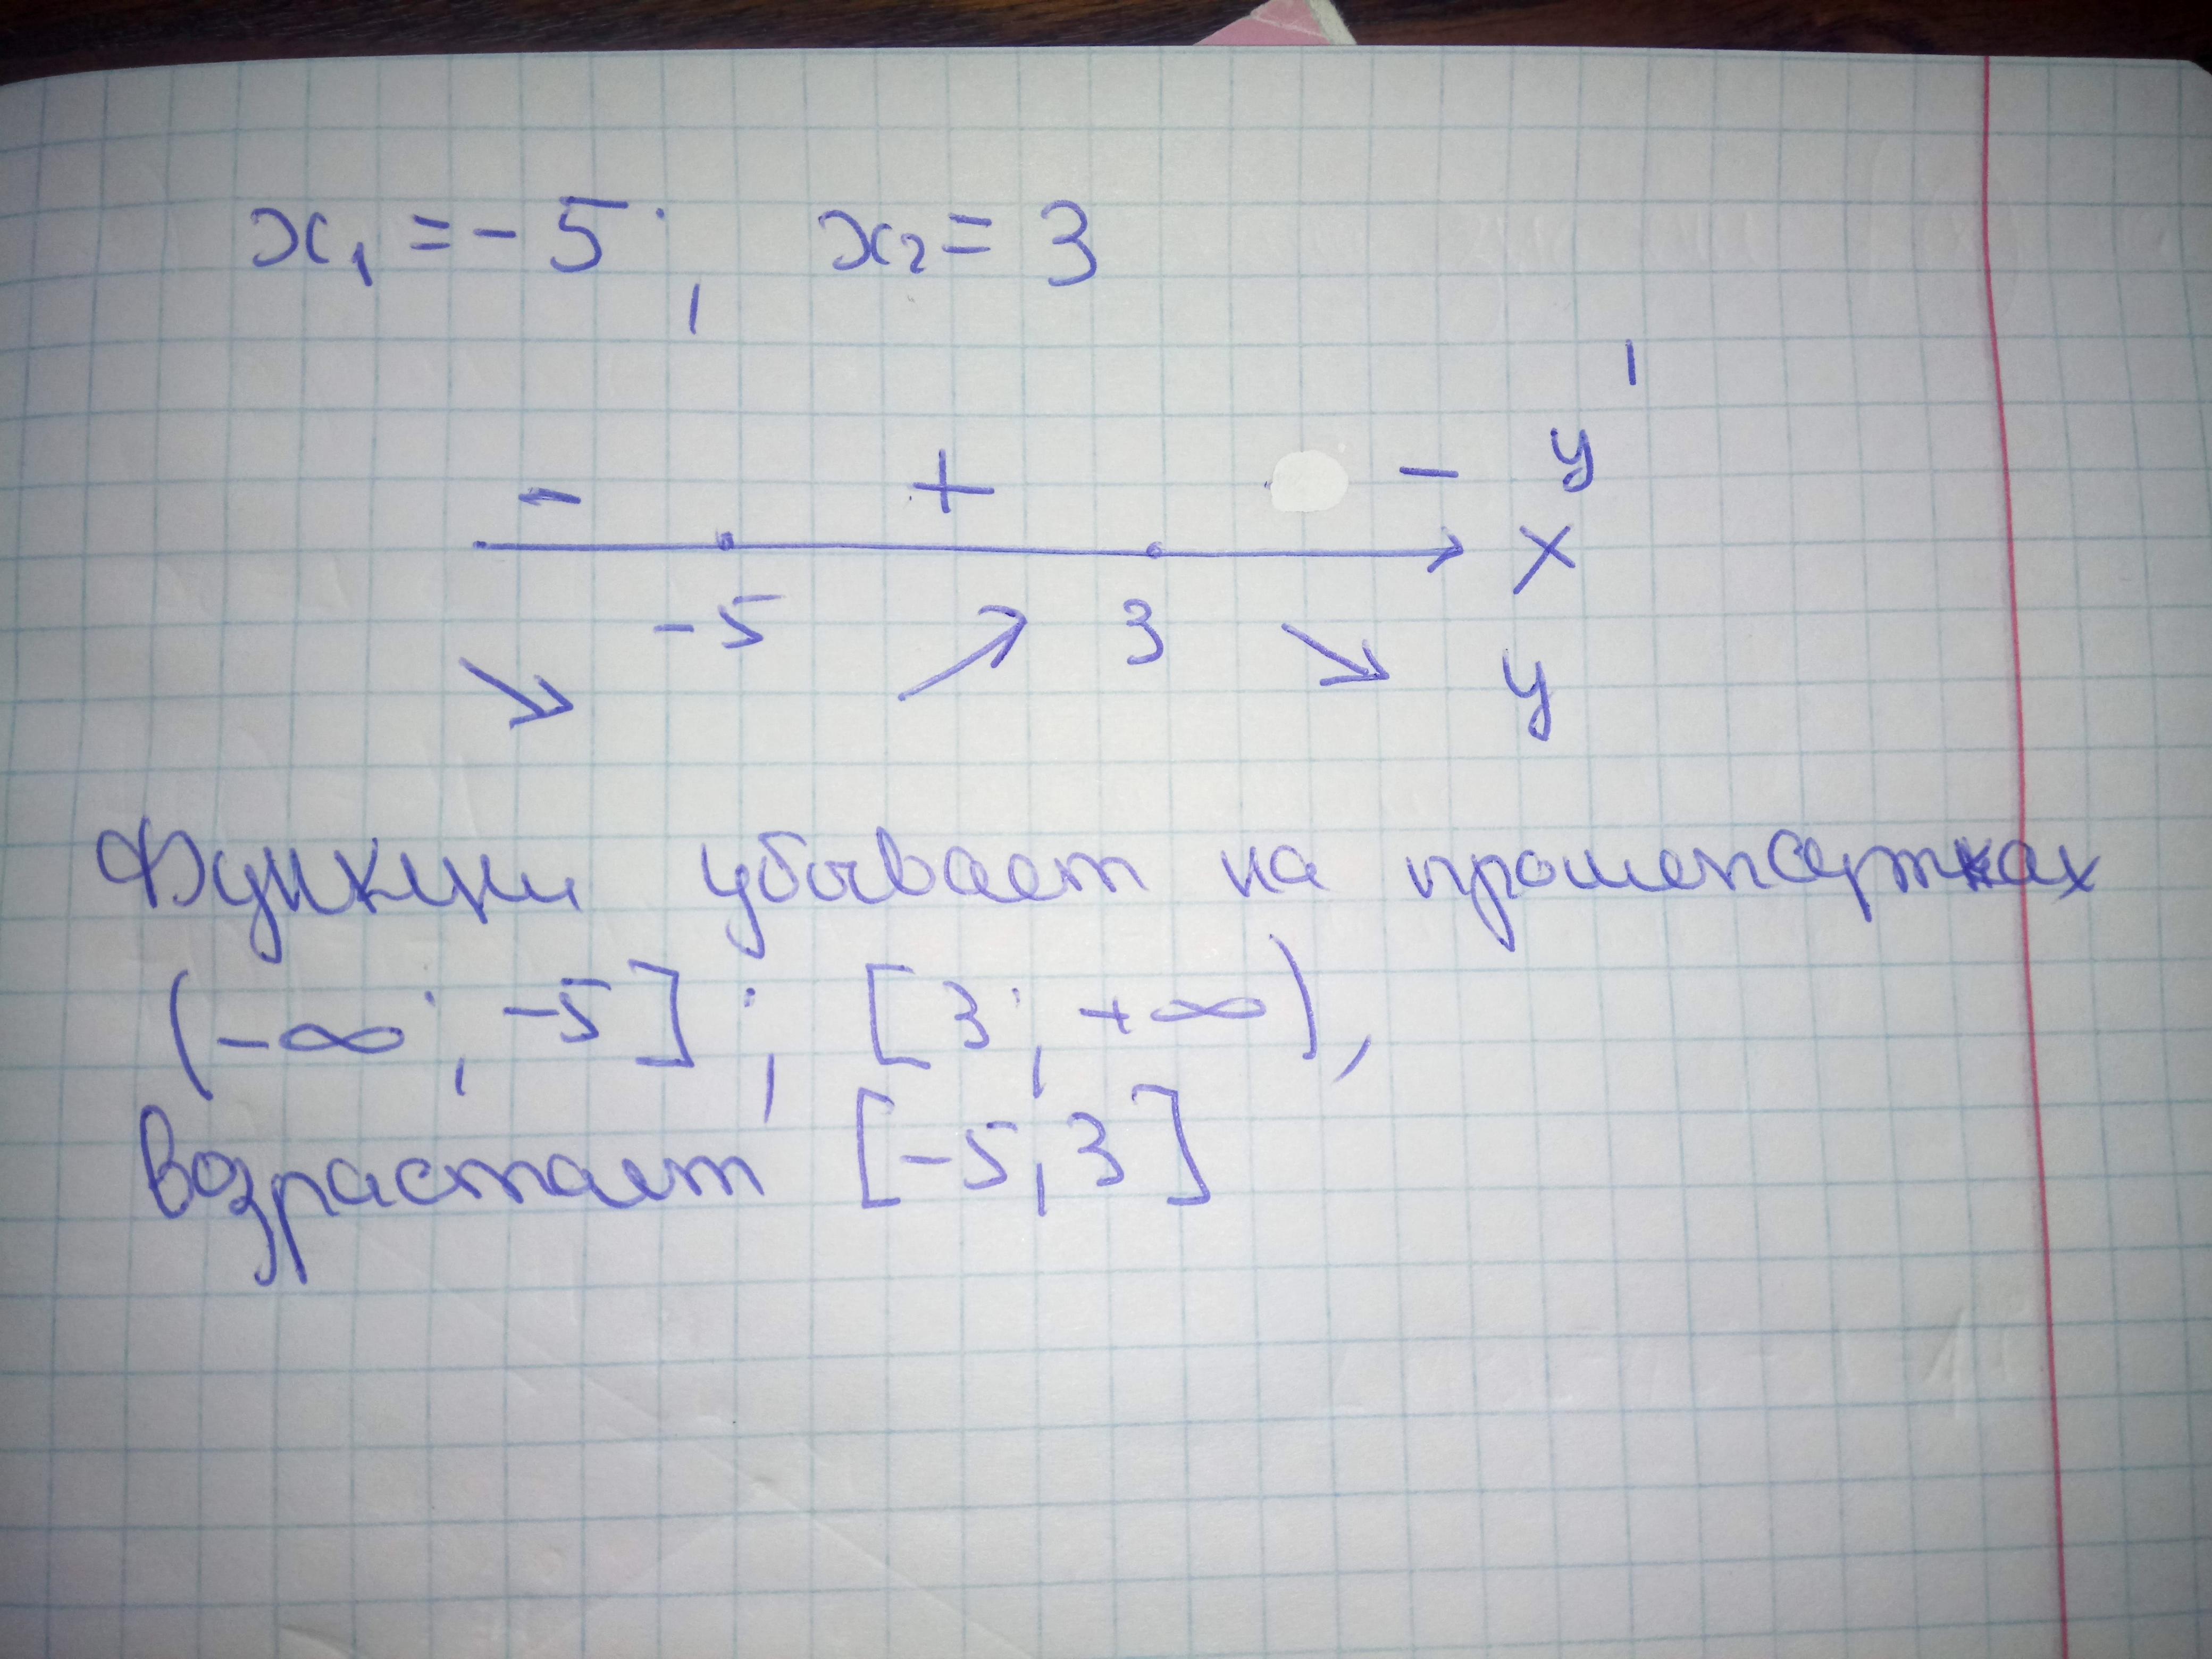 x₁ = -5; x₂ = 3
y'
- + -
x
-5 3
y
Функции убывает на промежутках
(-∞; -5]; [3; +∞),
возрастает [-5, 3]